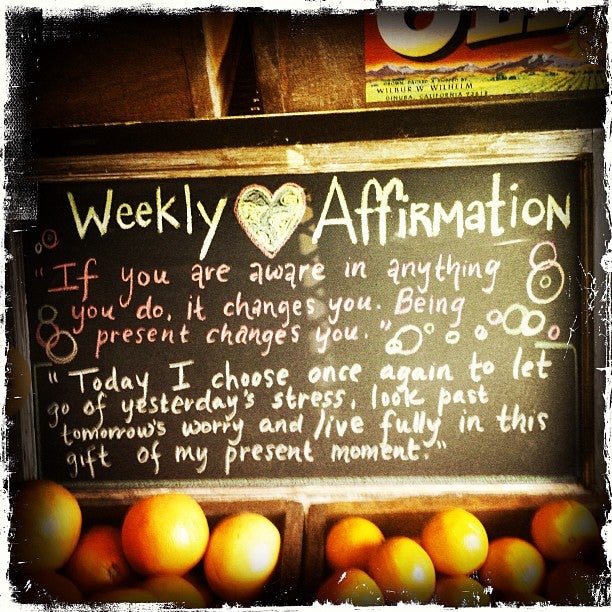 GROWN, PACKED & SHIPPED BY
WILBUR W. WILHELM
DINUBA, CALIFORNIA
Weekly Affirmation
"If you are aware in anything
you do, it changes you. Being
present changes you."
"Today I choose once again to let
go of yesterday's stress, look past
tomorrow's worry and live fully in this
gift of my present moment."